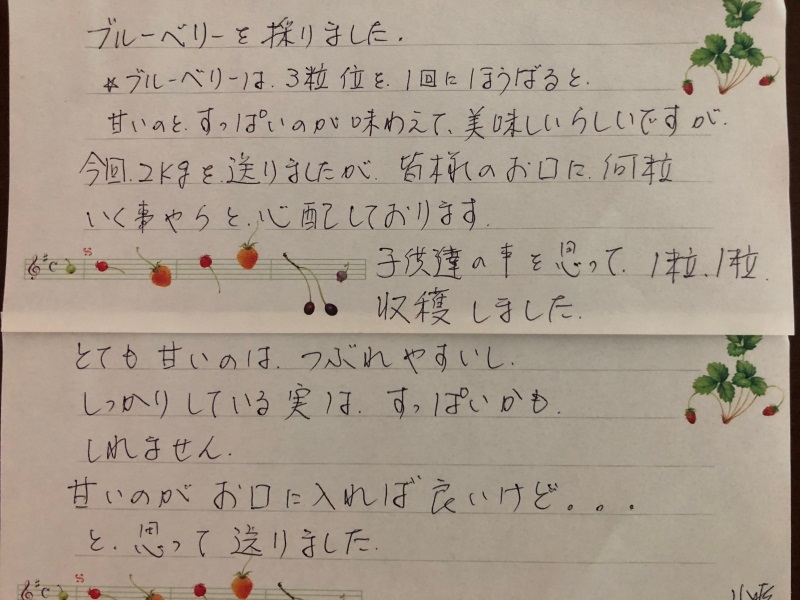 ブルーベリーを採りました.
☆ブルーベリーは.3粒位を.1回にほうばると.
甘いのと.すっぱいのが味わえて、美味しいらしいですが.
今回.2kgを.送りましたが.皆様のお口に.何粒
いく事やらと.心配しております.
子供達の事を思って.1粒.1粒.
収穫しました.
とても甘いのは.つぶれやすいし.
しっかりしている実は.すっぱいかも.
しれません.
甘いのがお口に入れば良いけど。。.
と.思って送りました.